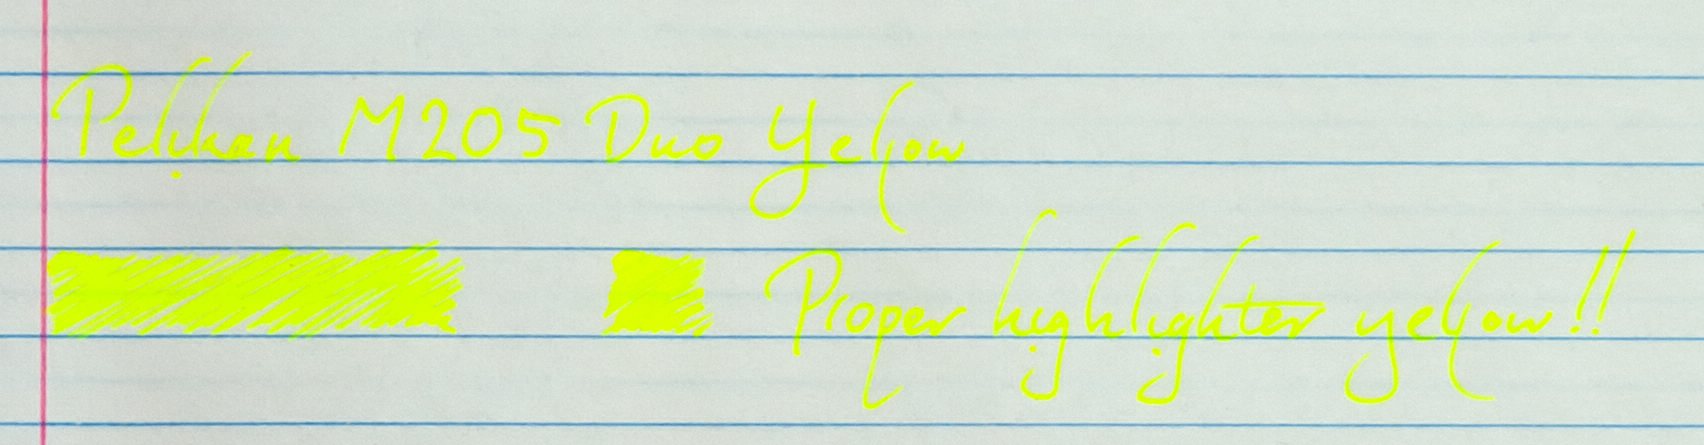 Pelikan M205 Duo Yellow
Proper highlighter yellow!!